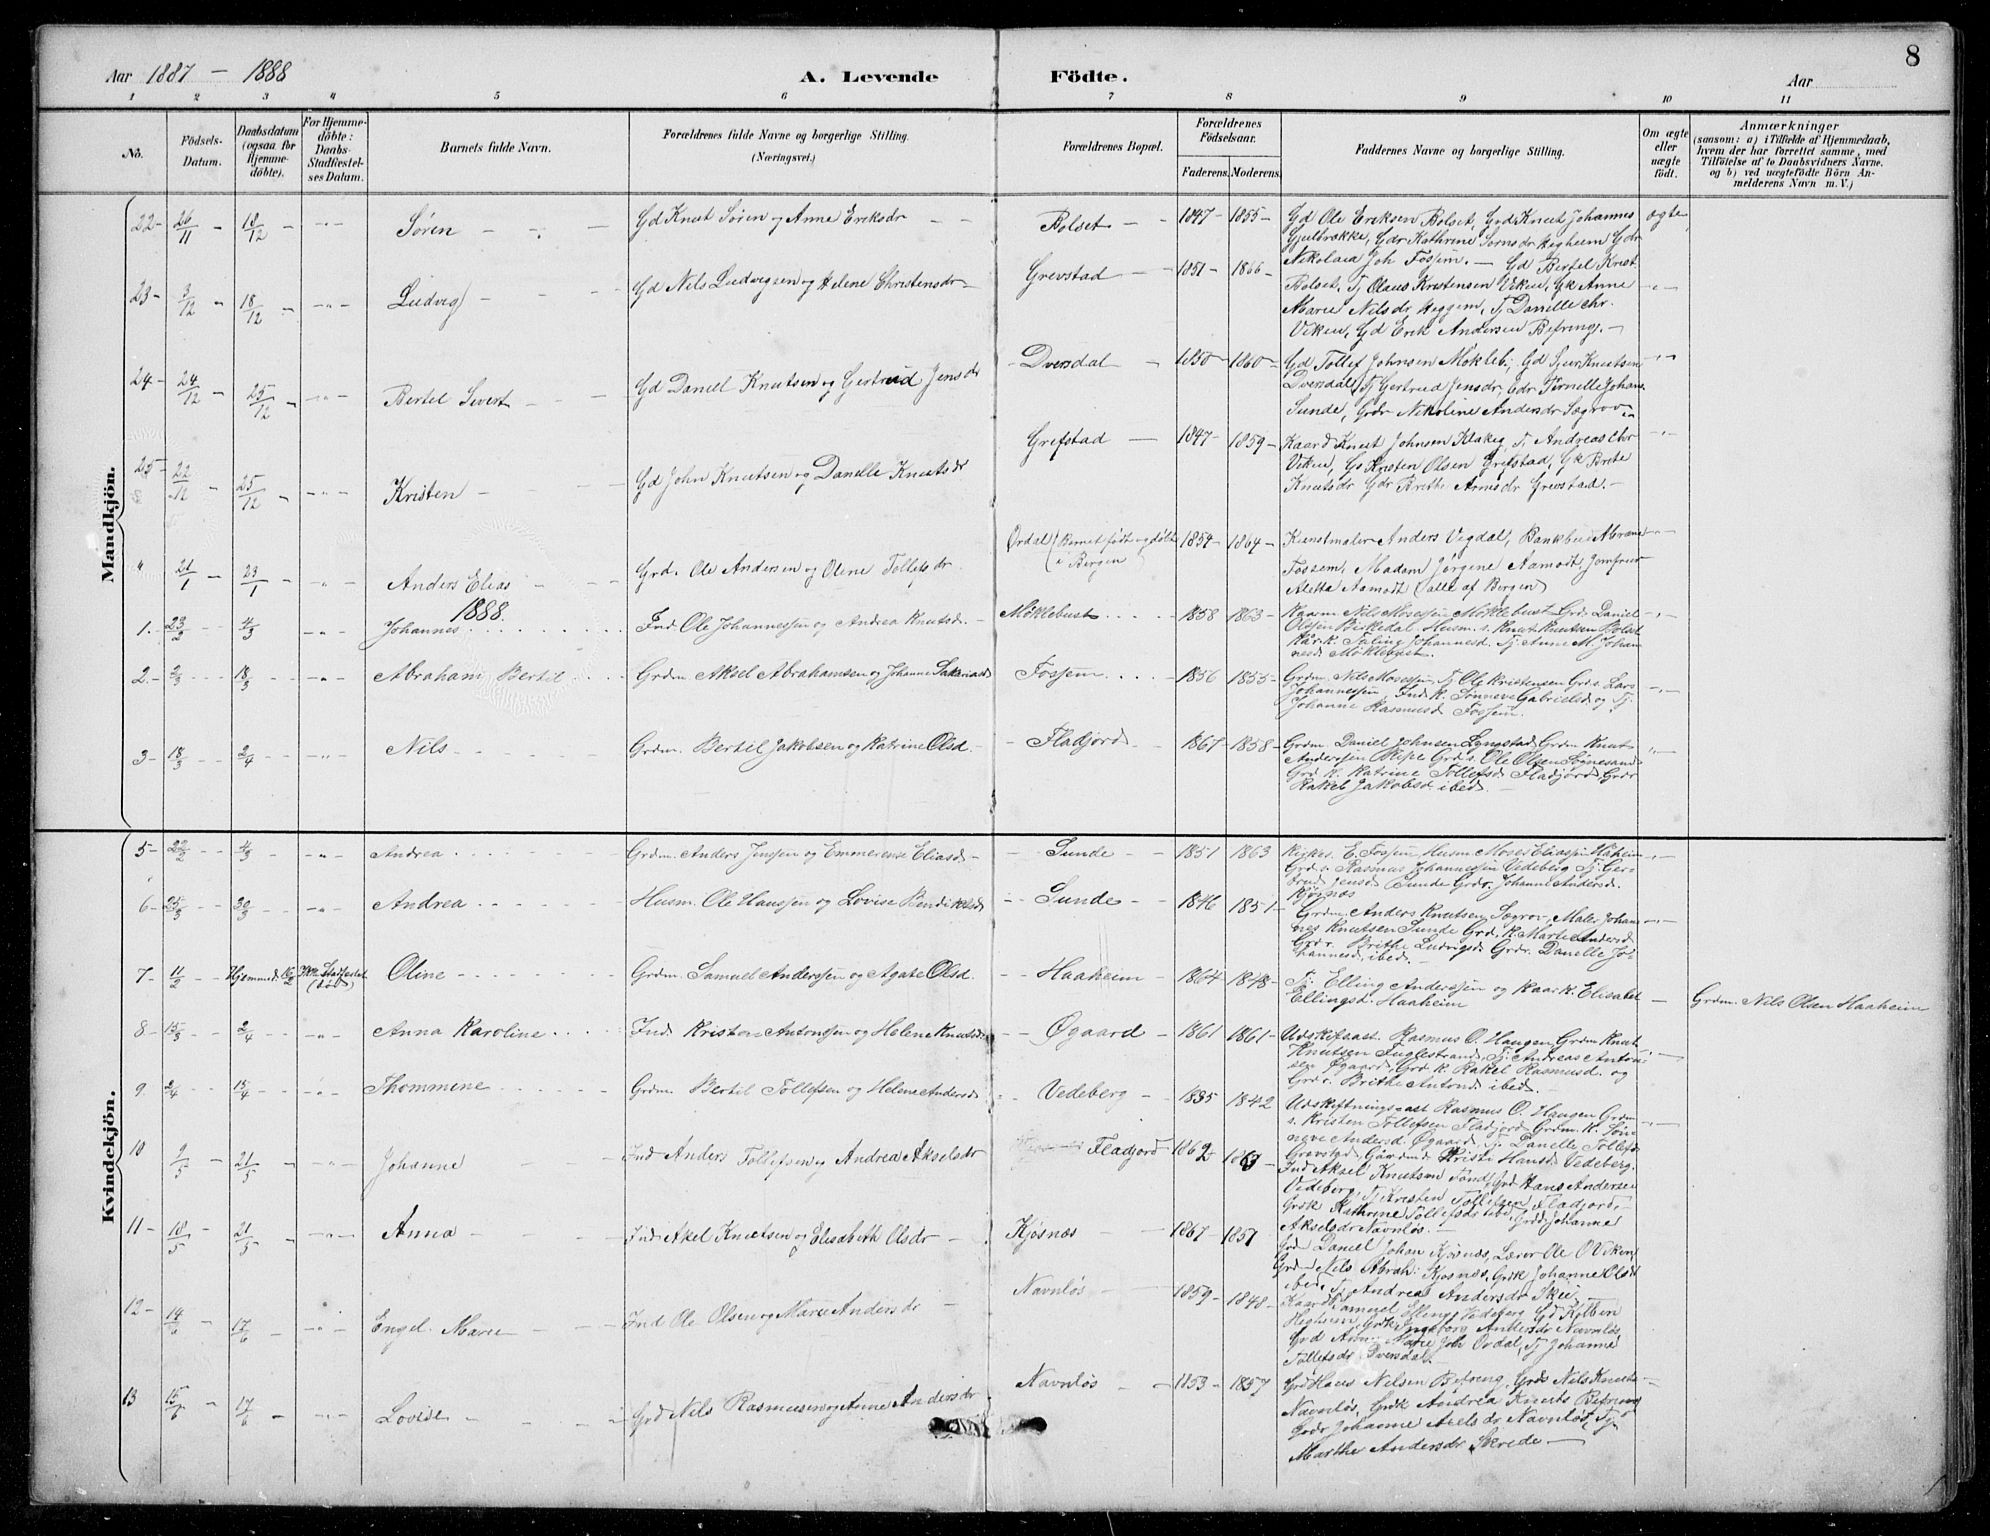 Aar 1887 — 1888
A. Levende Födte.
Aar
8
1 2 3 4 5 6 7 8 9 10 11
No.
Födsels-Datum.
Daabsdatum (ogsaa for Hjemme-döbte).
For Hjemme-döbte: Daabs-Stadfestel-ses Datum.
Barnets fulde Navn.
Forældrenes fulde Navne og borgerlige Stilling. (Næringsvei.)
Forældrenes Bopæl.
Forældrenes Födselsaar.
Faderens. Moderens.
Faddernes Navne og borgerlige Stilling.
Om ægte eller uægte födt.
Anmærkninger
(saasom: a) i Tilfælde af Hjemmedaab, hvem der har forrettet samme, med Tilföielse af to Daabsvidners Navne. og b) ved uægtefödte Börn An-melderens Navn m. V.)
Mandkjön.
22 26/11 18/12 Søren Gd Knut Søren og Anne Eriksdr Bolset 1847 1855 Gd Ole Eriksen Bolset, Grd Knut Johannes ægte
Gjelbrække, Gdr Kathrine Sørnsdr Hegheim Gdr
Nikolaia Joh Fossem.
23 3/12 18/12 Ludvig Gd Nils Ludvigsen og Helene Christensdr Grevstad 1851 1866 Gd Bertel Krist
Bolset, Tj Olaus Kristensen Viken, Gk Anne
Marie Nilsdr Heggem, Tj Danielle Chr.
Viken, Gd Erik Andersen Befring.
24 24/12 25/12 Bertel Sivert Gd Daniel Knutsen og Gertrud Jensdr Dversdal 1850 1860 Gd Tollef Johnsen Mökleb, Gd Sjur Knutsen
Dversdal, Tj Gertrud Jensdr, Gdr Pernelle Johans
Sunde, Gdr Nikoline Andersdr Søgrov
25 22/12 25/12 Kristen Gd John Knutsen og Danelle Knutsdr Grefstad 1847 1859 Kaard Knut Johnsen Klakeg, Tj Andreas Chr
Viken, Gs Kristen Olsen Grefstad, Gk Brite
Knutsdr Gdr Brithe Arnesdr Grevstad.
" 21/1 23/1 Anders Elias Grd. Ole Andersen og Olene Tollefsdr Ordal (Barnet født og døbt i Bergen 1854 1864 Kunstmaler Anders Vegdal, Bankbud Abram
Fossem, Madam Jørgine Aamodt, Jomfrue
Aletta Aamodt (alle af Bergen)
1888.
1. 23/2 4/3 Johannes Ind Ole Johannessen og Andrea Knutsd. Möklebust 1858 1863 Kaarm Nils Mosessen Möklebust Grd. Daniel
Olssen Birkedal Husm. s. Knut Knutsen Bolset
Kår k. Taline Johannesd. Tj. Anne M. Johan
nesd Möklebust.
2. 2/3 18/3 Abraham Bertil Grdm Aksel Abrahamsen og Johanne Sakariasd Fossem 1856 1855 Grdm. Nils Mosessen, Tj Ole Kristensen Grd s. Lars
Johannessen, Ind k. Sønneve Gabrielsd og Tj.
Johanne Rasmusd Fossem.
3 18/3 2/4 Nils Grdm. Bertil Jakobsen og Katrine Olsd. Fladjord 1867 1858 Grdm. Daniel Johnsen Lyngstad Grdm Knut
Anderssen Ripe Grd s. Ole Olsen Søgnesand
Grd k. Katrine Tollefsd Fladjord Grdr
Rakel Jakobsd ibed.
Kvindekjön.
5 22/2 4/3 Andrea Grdm. Anders Jenssen og Emmerense Eliasd Sunde 1851 1863 Kirkes. E. Fossem Husm Moses Eliassen Haheim
Grd s. Rasmus Johannessen Vedeberg Tj. Ger-
trud Jensd Sunde Grdr. Johanne Andersd.
Kjøsnæs
6 25/3 30/3 Andrea Husm. Ole Hanssen og Lovise Bendiktsd Sunde 1846 1851 Grdm. Anders Knutsen Søgrov, Maler Johan-
nes Knutsen Sunde Grd. k. Marte Andersd
Grd r. Brithe Ludvigsd Grdr. Danelle Jo-
hannesd ibed.
7 11/2 Hjemmed. 16/2 Ikke Stadfestet (død) Oline Grdm. Samuel Anderssen og Agate Olsd. Haaheim 1864 1848 Tj. Elling Anderssen og Kaar k. Elisabet
Ellingsd. Haaheim Grdm. Nils Olsen Haaheim
8 15/3 2/4 Anna Karoline Ind Kristen Antonssen og Helene Knutsd Øgaard 1861 1861 Udskifsast. Rasmus O. Haugen Grdm Knut
Knutsen Fuglestrand, Tj. Andreas Anton-
sen Øgaard, Grd k. Rakel Rasmusd. og
Grd r. Brithe Antond ibed.
9. 2/4 15/4 Thommine Grdm. Bertil Tollefsen og Helene Andersd Vedeberg 1835 1842 Udskiftnings-ast Rasmus O. Haugen Grdm
s. Kristen Tollefsen Fladjord Grdm. k. Søn-
neve Andersd. Øgaard Tj. Danelle Tollefsd
Grevstad, Gårdmd Kristi Hansd Vedeberg.
10 9/5 21/5 Johanne Ind Anders Tollefsen og Andrea Akselsdr Fladjord 1862 1863 Ind Aksel Knutsen Fond, Grd Hans Andersen
Vedeberg, Tj Kristen Tollefsen Fladjord,
Grdk Kathrine Tollefsdr ibd, Grdd Johanne
Akselsdr Navnløs.
11 18/5 21/5 Anna Ind Aksel Knutsen og Elisabeth Olsdr Kjøsnæs 1867 1857 Grd Daniel Johan Kjøsnæs, Lærer Ole O Viken,
Grd Nils Abrah: Kjosnæs, Grdk Johanne Olsd
ibed, Tj Andrea Andersdr Skei
12 14/6 17/6 Engel Marie Ind Ole Olsen og Marie Andersdr Navnløs 1859 1848 Kaard Samuel Ellings Vedeberg Gd Kilben
Hegheim, Grdk Ingeborg Andersdr Navnløs,
Grd Abr: Marie Joh Ordal, Tj Johanne
Tollefsdr Dversdal.
13 15/6 17/6 Lovise Grd Nils Rasmussen og Anne Andersdr Navnløs 1853 1857 Grd Hans Nilsen Befring, Grds Nils Knuts
Navnløs, Grdk Andrea Knuts Befring
Grdr Johanne Axelsdr Navnløs, Tj
Marthe Andersdr Skrede